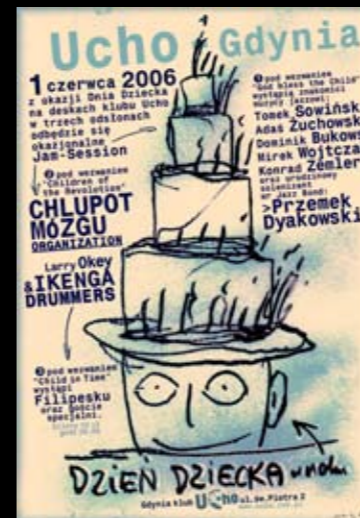 Ucho Gdynia
1 czerwca 2006
z okazji Dnia Dziecka
na deskach klubu Ucho
w trzech odsłonach
odbędzie się
okazjonalne
Jam-Session
❷ pod wezwaniem
"Children of
the Revolution"
CHLUPOT
MÓZGU
ORGANIZATION
Larry Okey
&IKENGA
DRUMMERS
❸ pod wezwaniem
"Child in Time"
wystąpi
Filipesku
oraz goście
specjalni.
pod wezwaniem
"God bless the Child"
wystąpią znakomici
muzycy jazzowi:
Tomek Sowińsk
Adaś Żuchowsk
Dominik Bukows
Mirek Wojtcza
Konrad Żemler
oraz urodzinowy
>Przemek
Dyakowski
DZIEŃ DZIECKA
Gdynia klub Ucho ul.św.Piotra 2